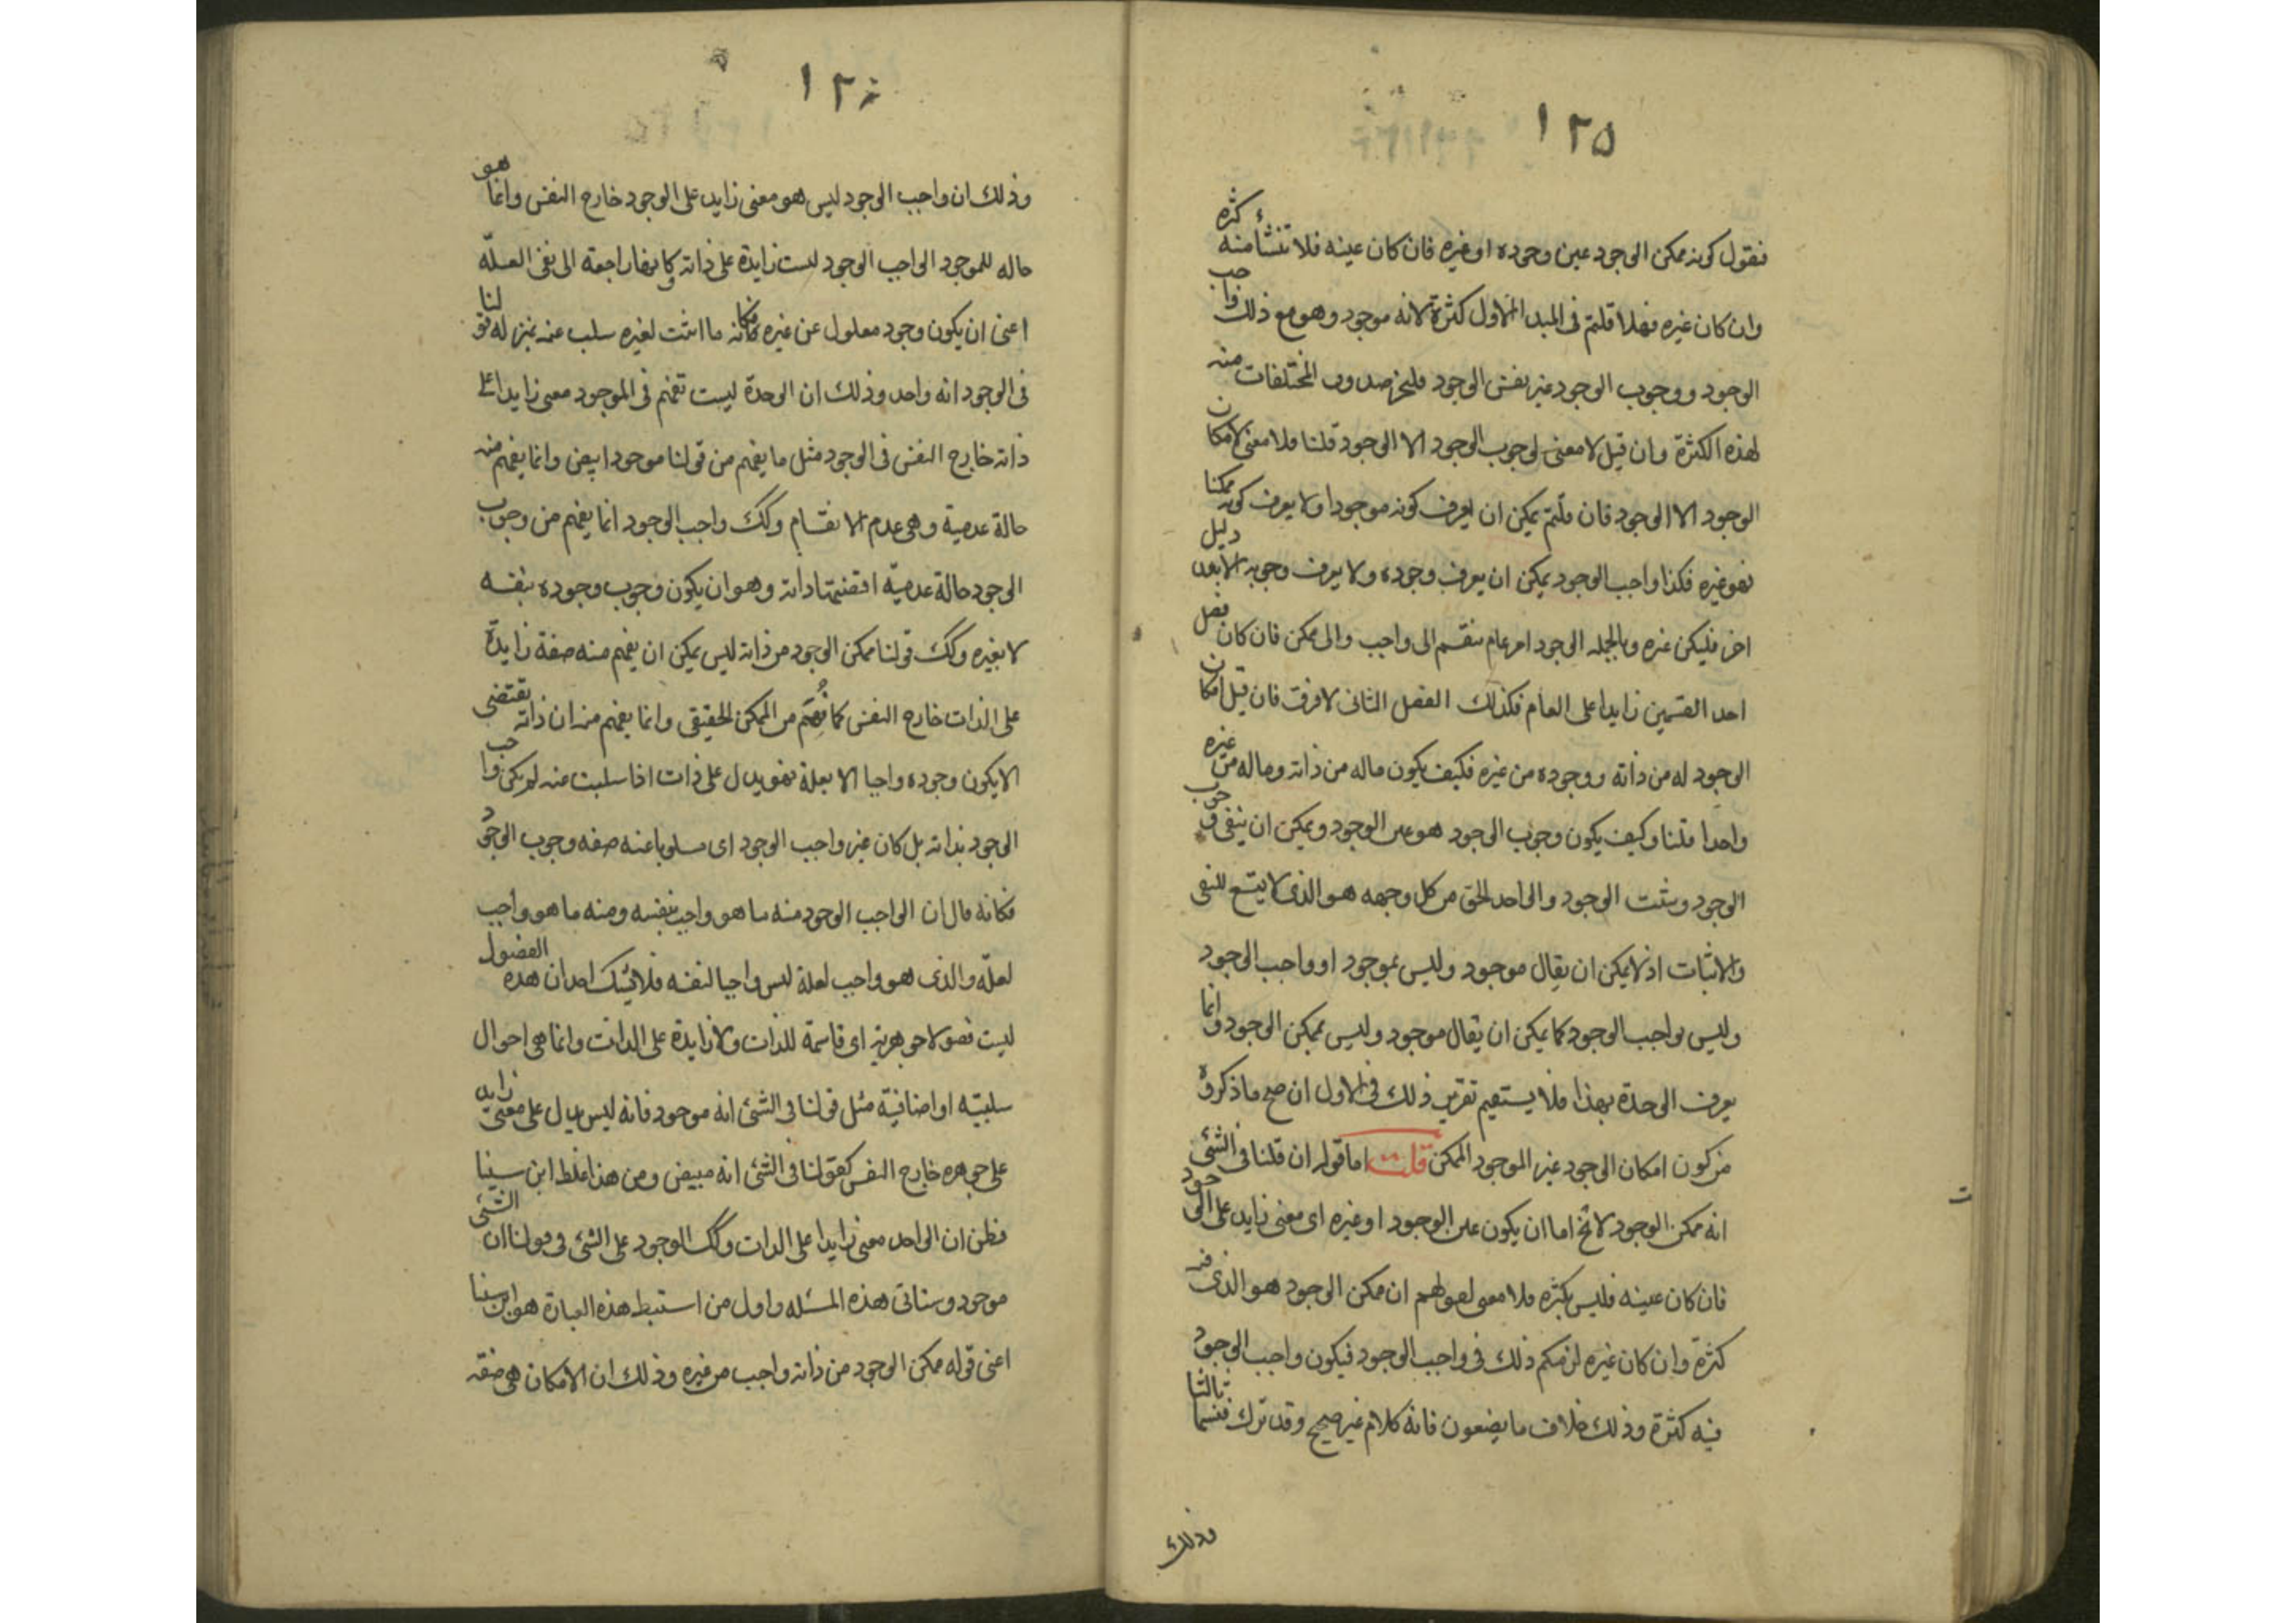 ١٢٥
فنقول كونه ممكن الوجود عين وجوده او غيره فان كان عينه فلا تنشأ منه كثره
وان كان غيره فهلا قلتم فى المبدا الاول كثرة لانه موجود وهو مع ذلك واجب
الوجود ووجوب الوجود غير نفس الوجود فليجز صدور المختلفات منه
لهذه الكثرة وان قيل لا معنى لوجوب الوجود الا الوجود قلنا فلا معنى لامكان
الوجود الا الوجود فان قلتم يمكن ان يعرف كونه موجودا ولا يعرف كونه ممكنا
فهو غيره فكذا واجب الوجود يمكن ان يعرف وجوده ولا يعرف وجوبه الا بعد دليل
اخر فليكن غيره وبالجمله الوجود امر عام ينقسم الى واجب والى ممكن فان كان فصل
احد القسمين زايدا على العام فكذلك الفصل الثانى لا فرق فان قيل امكان
الوجود له من ذاته ووجوده من غيره فكيف يكون ماله من ذاته وماله من غيره
واحدا قلنا وكيف يكون وجوب الوجود هو عين الوجود ويمكن ان ينفى وجوب
الوجود ويثبت الوجود والواحد الحق من كل وجهه هو الذى لا يتسع للنفى
والاثبات اذ لا يمكن ان يقال موجود وليس بموجود او واجب الوجود
وليس بواجب الوجود كما يمكن ان يقال موجود وليس بممكن الوجود وانما
يعرف الوحدة بهذا فلا يستقيم تقرير ذلك فى الاول ان صح ما ذكروه
من كون امكان الوجود غير الموجود الممكن قلت اما قوله ان قلنا فى الشئ
انه ممكن الوجود لا يخ اما ان يكون عين الوجود او غيره اى معنى زايد على الوجود
فان كان عينه فليس بكثره فلا معنى لقولهم ان ممكن الوجود هو الذى فيه
كثرة وان كان غيره لزمكم ذلك فى واجب الوجود فيكون واجب الوجود
فيه كثرة وذلك خلاف ما يضعون فانه كلام غير صحيح وقد ترك قسما ثالثا
وذلك
١٢٦
وذلك ان واجب الوجود ليس هو معنى زايد على الوجود خارج النفس وانما هو
حاله للموجود الواجب الوجود ليست زايدة على ذاته وكانها راجعة الى نفى العلّة
اعنى ان يكون وجود معلول عن غيره فكانه ما اثبت لغيره سلب عنه بمنزله قولنا
فى الوجود انه واحد وذلك ان الوحدة ليست تفهم فى الموجود معنى زايدا على
ذاته خارج النفس فى الوجود مثل ما يفهم من قولنا موجود ابيض وانما يفهم منه
حالة عدمية وهى عدم الانقسام وكك واجب الوجود انما يفهم من وجوب
الوجود حالة عدميّه اقتضتها ذاته وهو ان يكون وجوب وجوده بنفسه
لا بغيره وكك قولنا ممكن الوجود من ذاته ليس يمكن ان يفهم منه صفة زايدة
على الذات خارج النفس كما فُهِم من الممكن الحقيقى وانما يفهم منه ان ذاته يقتضى
الا يكون وجوده واجبا الا بعلة فهو يدل على ذات اذا سلبت عنه لم يكن واجب
الوجود بذاته بل كان غير واجب الوجود اى مسلوبا عنه صفه وجوب الوجود
فكانه قال ان الواجب الوجود منه ما هو واجب بنفسه ومنه ما هو واجب
لعلّه والذى هو واجب لعلة ليس واجبا لنفسه فلا يشك احد ان هذه الفضول
ليست فضولا جوهريه اى قاسمة للذات ولا زايدة على الذات وانما هى احوال
سلبيّه او اضافيّة مثل قولنا فى الشئ انه موجود فانه ليس يدل على معنى زايد
على جوهره خارج النفس كقولنا فى الشئ انه مبيض ومن هذا غلط ابن سينا
فظن ان الواحد معنى زايدا على الذات وكك الوجود على الشئ فى قولنا ان الشئ
موجود وسناتى هذه المسئله واول من استنبط هذه العبارة هو ابن سينا
اعنى قوله ممكن الوجود من ذاته واجب من غيره وذلك ان الامكان هى صفه